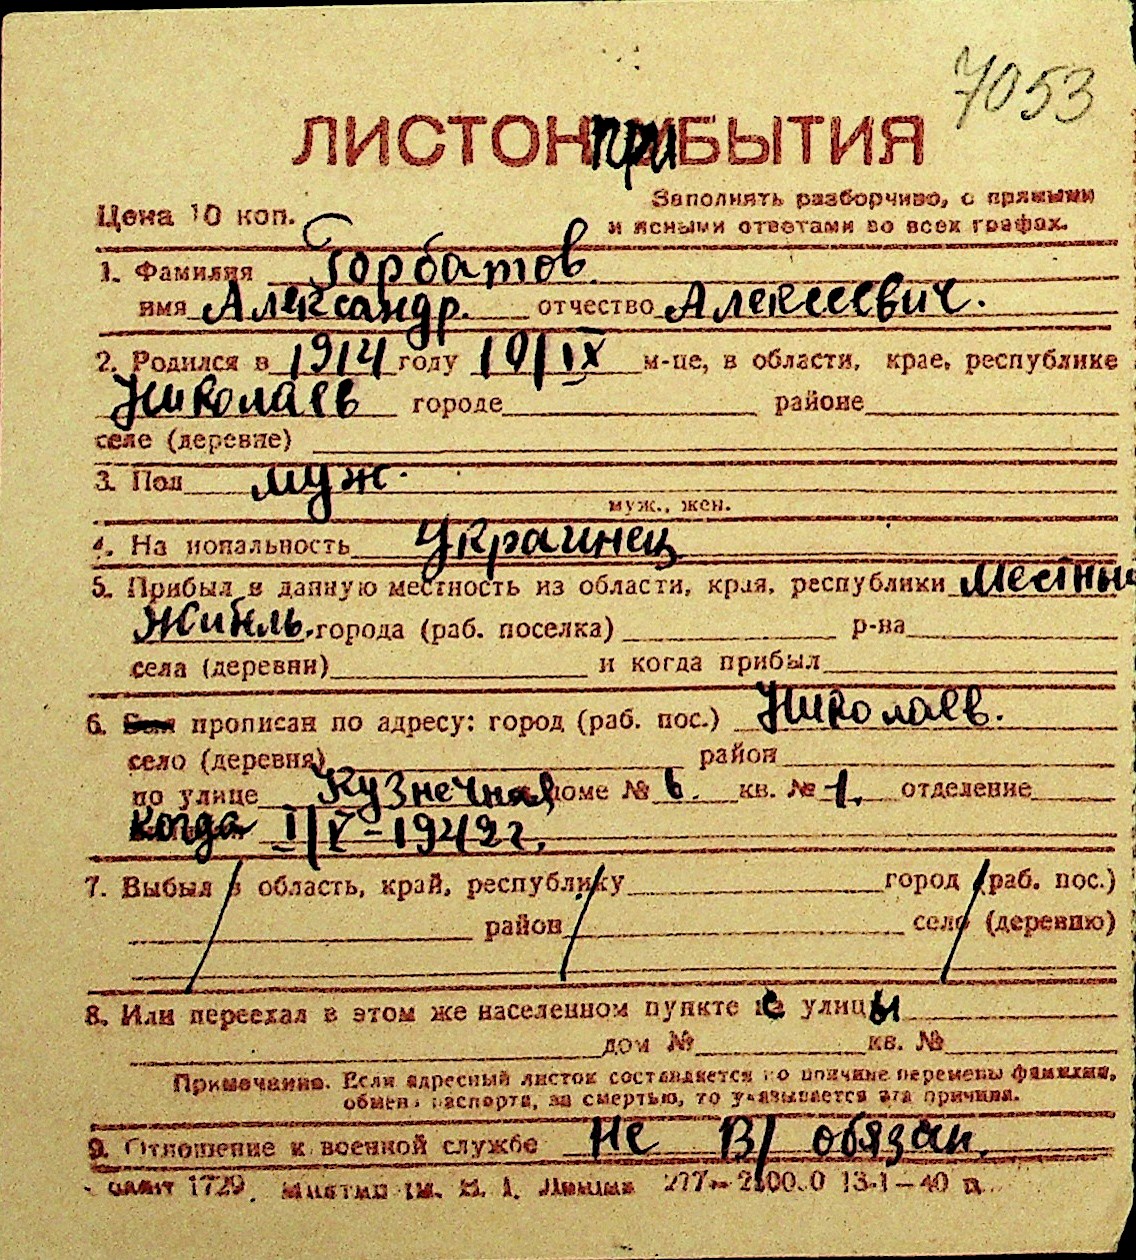 7053
ЛИСТОК ПРИБЫТИЯ
Цена 10 коп.
Заполнять разборчиво, с прямыми
и ясными ответами во всех графах.
1. Фамилия Горбатов
имя Александр. отчество Алексеевич.
2. Родился в 1914 году 10/IX м-це, в области, крае, республике
Николаев городе районе
селе (деревне)
3. Пол муж.
муж., жен.
4. На иональность Украинец
5. Прибыл в данную местность из области, края, республики местны
житель. города (раб. поселка) р-на
села (деревни) и когда прибыл
6. Был прописан по адресу: город (раб. пос.) Николаев.
село (деревня) район
по улице Кузнечная доме № 6. кв. № 1. отделение
когда I/V-1942 г.
7. Выбыл в область, край, республику город (раб. пос.)
район село (деревню)
8. Или переехал в этом же населенном пункте с улицы
дом № кв. №
Примечание. Если адресный листок составляется по причине перемены фамилии,
обмена паспорта, за смертью, то указывается эта причина.
9. Отношение к военной службе не В/обязан.
1729. 13-1-40